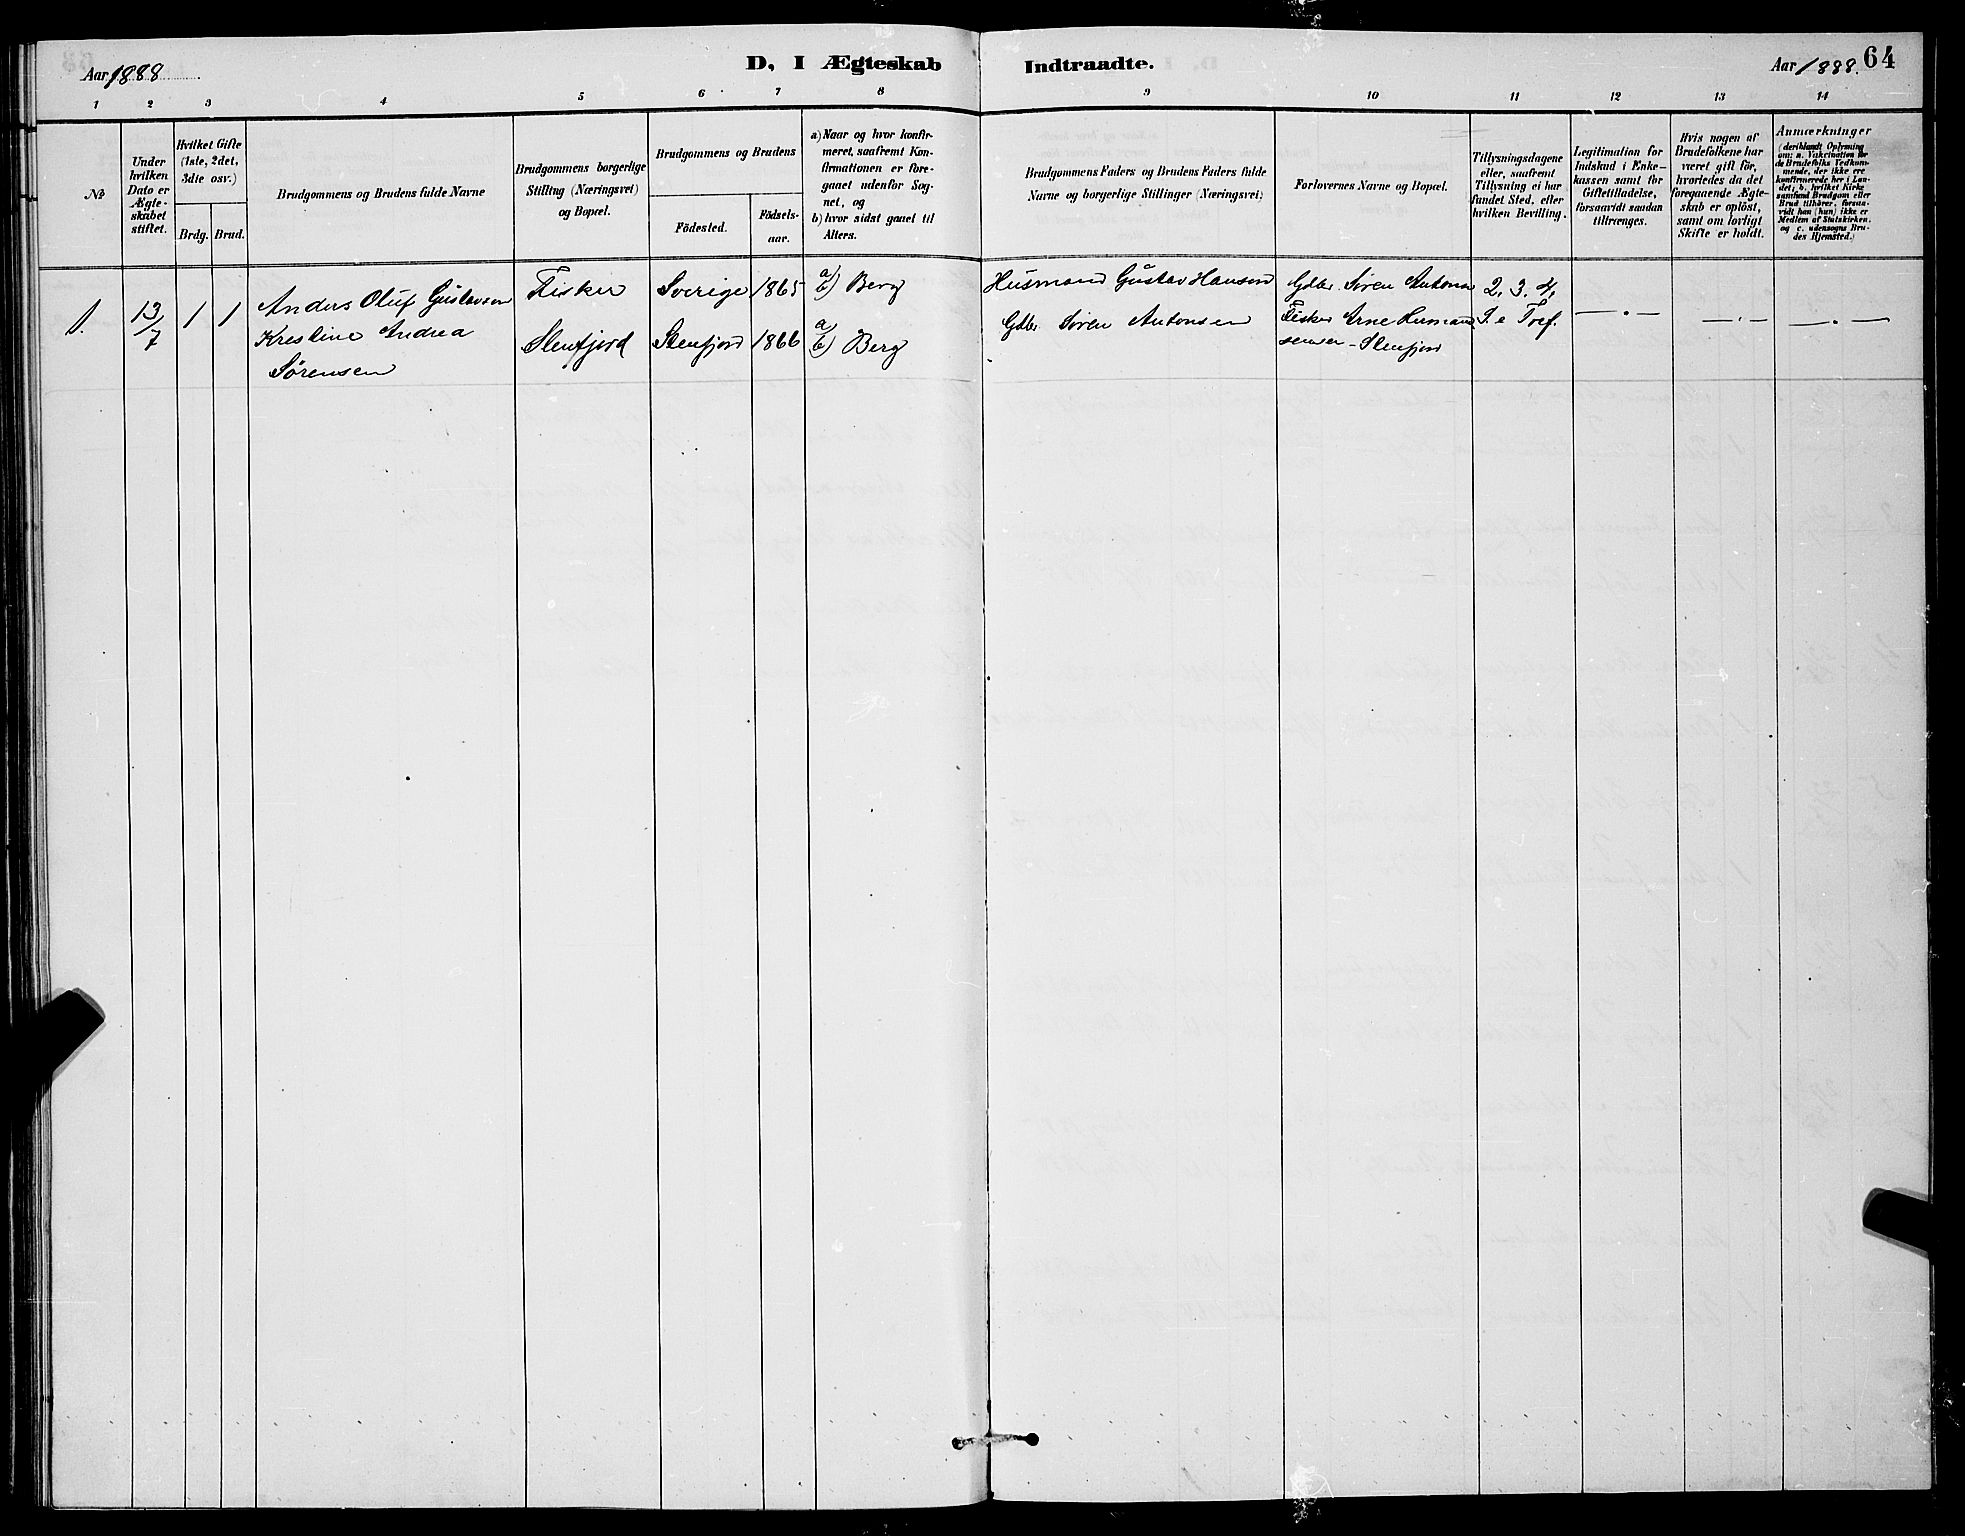 Aar 1888
D, I Ægteskab Indtraadte.
Aar 1888. 64
1 2 3 4 5 6 7 8 9 10 11 12 13 14
No
Under
hvilken
Dato er
Ægte-
skabet
stiftet.
Hvilket Gifte
(1ste, 2det,
3die osv.)
Brdg. Brud.
Brudgommens og Brudens fulde Navne
Brudgommens borgerlige
Stilling (Næringsvei)
og Bopæl.
Brudgommens og Brudens
Födested.
Födsels-
aar.
a) Naar og hvor konfir-
meret, saafremt Kon-
firmationen er fore-
gaaet udenfor Sog-
net, og
b) hvor sidst gaaet til
Alters.
Brudgommens Faders og Brudens Faders fulde
Navne og borgerlige Stillinger (Næringsvei)
Forlovernes Navne og Bopæl.
Tillysningsdagene
eller, saafremt
Tillysning ei har
fundet Sted, efter
hvilken Bevilling.
Legitimation for
Indskud i Enke-
kassen samt for
Giftetilladelse,
forsaavidt saadan
tiltrænges.
Hvis nogen af
Brudefolkene har
været gift för,
hvorledes da det
foregaaende Ægte-
skab er oplöst,
samt om lovligt
Skifte er holdt.
Anmærkninger
(deriblandt Oplysning
om: a. Vakcination for
de Brudefolks Vedkom-
mende, der ikke ere
konfirmerede her i Lan-
det; b. hvilket Kirke
samfund Brudgom eller
Brud tilhörer, forsaa-
vidt han (hun) ikke er
Medlem af Statskirken,
og c. udensogns Bru-
des Hjemsted.)
1. 13/7 1 1
Anders Oluf Gustavsen
Krestine Andrea
Sörensen
Fisker
Stenfjord
Sverige 1865
Stenfjord 1866
a/b) Berg
a/b) Berg
Husmand Gustav Hansen
Gdbr. Sören Antonsen
Gdbr. Sören Antonsen
Fisker Arne Herman
sensen - Stenfjord
2. 3. 4,
S. e Tref.
— . —
— . —
— . —